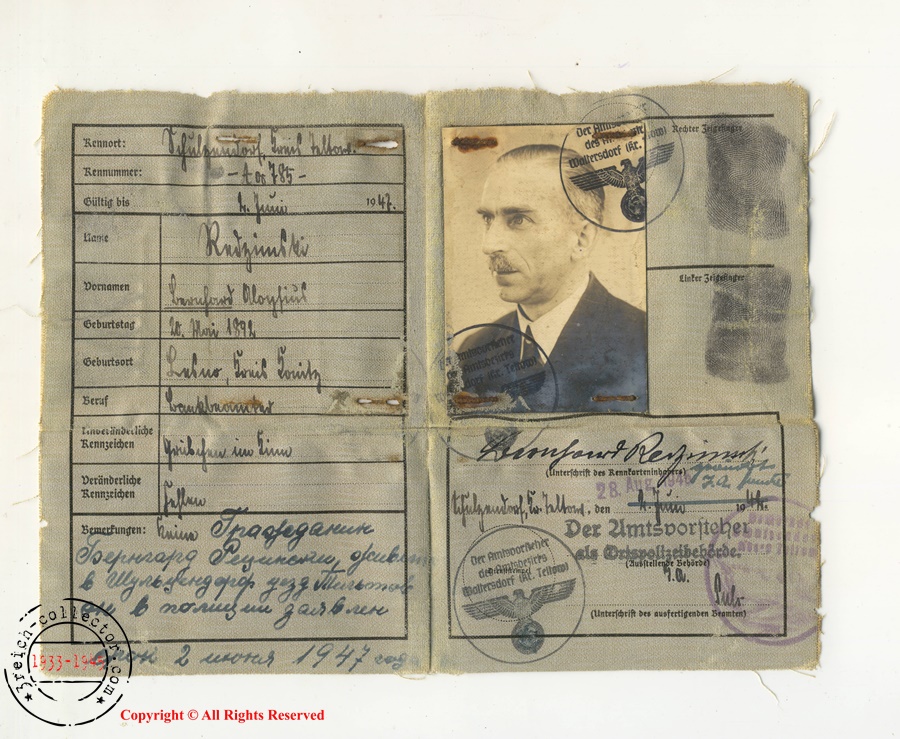 Kennort: Schulzendorf, Kreis Teltow.
Kennnummer: – A 00 785 –
Gültig bis 2. Juni 1947.
Name Redzimski
Vornamen Bernhard Aloysius
Geburtstag 20. Mai 1892
Geburtsort Lesno, Kreis Konitz
Beruf Bankbeamter
Unveränderliche Kennzeichen Grübchen im Kinn
Veränderliche Kennzeichen Fehlen
Bemerkungen: Keine Гражданин
Бернгард Редзински, живет
в Шульцендорф уезд Тельтов
в полиции заявлен
Срок 2 июня 1947 года
Der Amtsvorsteher
des Amtsbezirks
Waltersdorf (Kr. Teltow)
Rechter Zeigefinger
Linker Zeigefinger:
Der Amtsvorsteher
des Amtsbezirks
Waltersdorf (Kr. Teltow)
Bernhard Redzimski
(Unterschrift des Kennkarteninhabers)
28. Aug. 1946
Schulzendorf, Kr. Teltow, den 2. Juni 1942.
Der Amtsvorsteher
als Ortspolizeibehörde.
(Ausstellende Behörde)
I.A.
(Unterschrift des ausfertigenden Beamten)
Der Amtsvorsteher
des Amtsbezirks
Dienststempel
Waltersdorf (Kr. Teltow)
3reich-collector.com
1933-1945
Copyright © All Rights Reserved